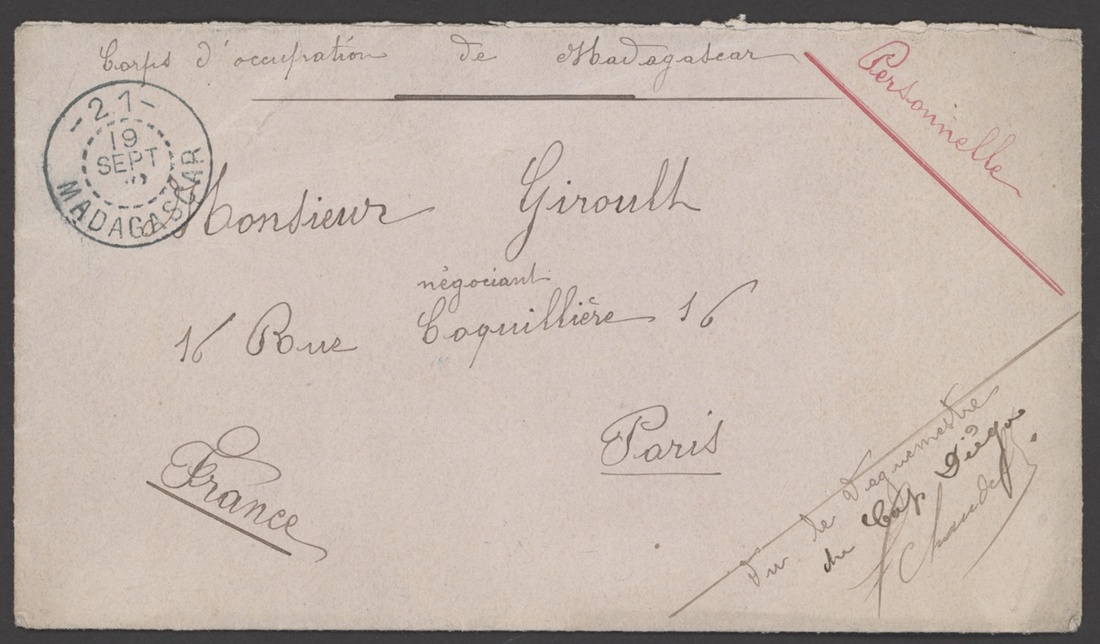 Corps d'occupation de Madagascar
Personnelle
-21-
19
SEPT
MADAGASCAR
Monsieur Giroult
négociant
16 Rue Coquillière 16
Paris
France
Vu le Vaguemestre
du Cap Diégo